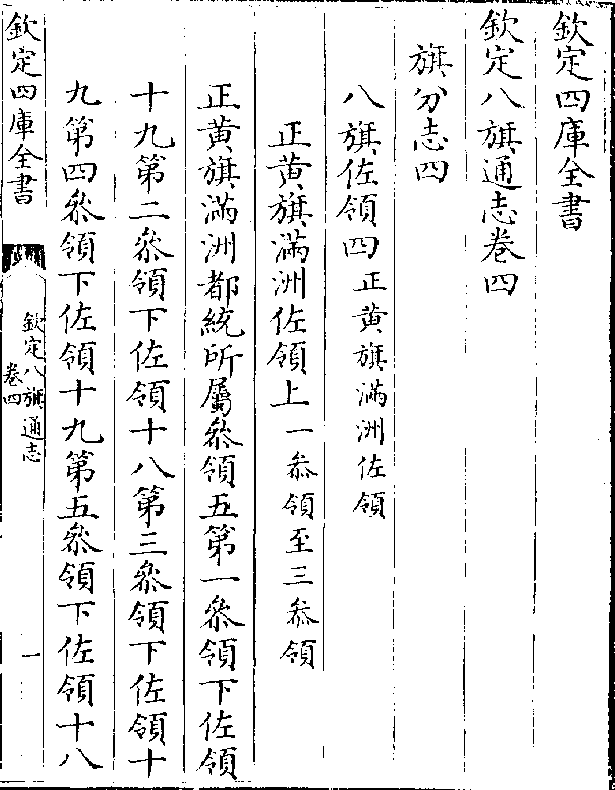 欽定四庫全書
欽定八旗通志卷四
旗分志四
八旗佐領四正黄旗滿洲佐領
正黄旗滿洲佐領上一叅領至三叅領
正黄旗滿洲都統所屬叅領五第一叅領下佐領
十九第二叅領下佐領十八第三叅領下佐領十
九第四叅領下佐領十九第五叅領下佐領十八
欽定四庫全書
欽定八旗通志
卷四
一